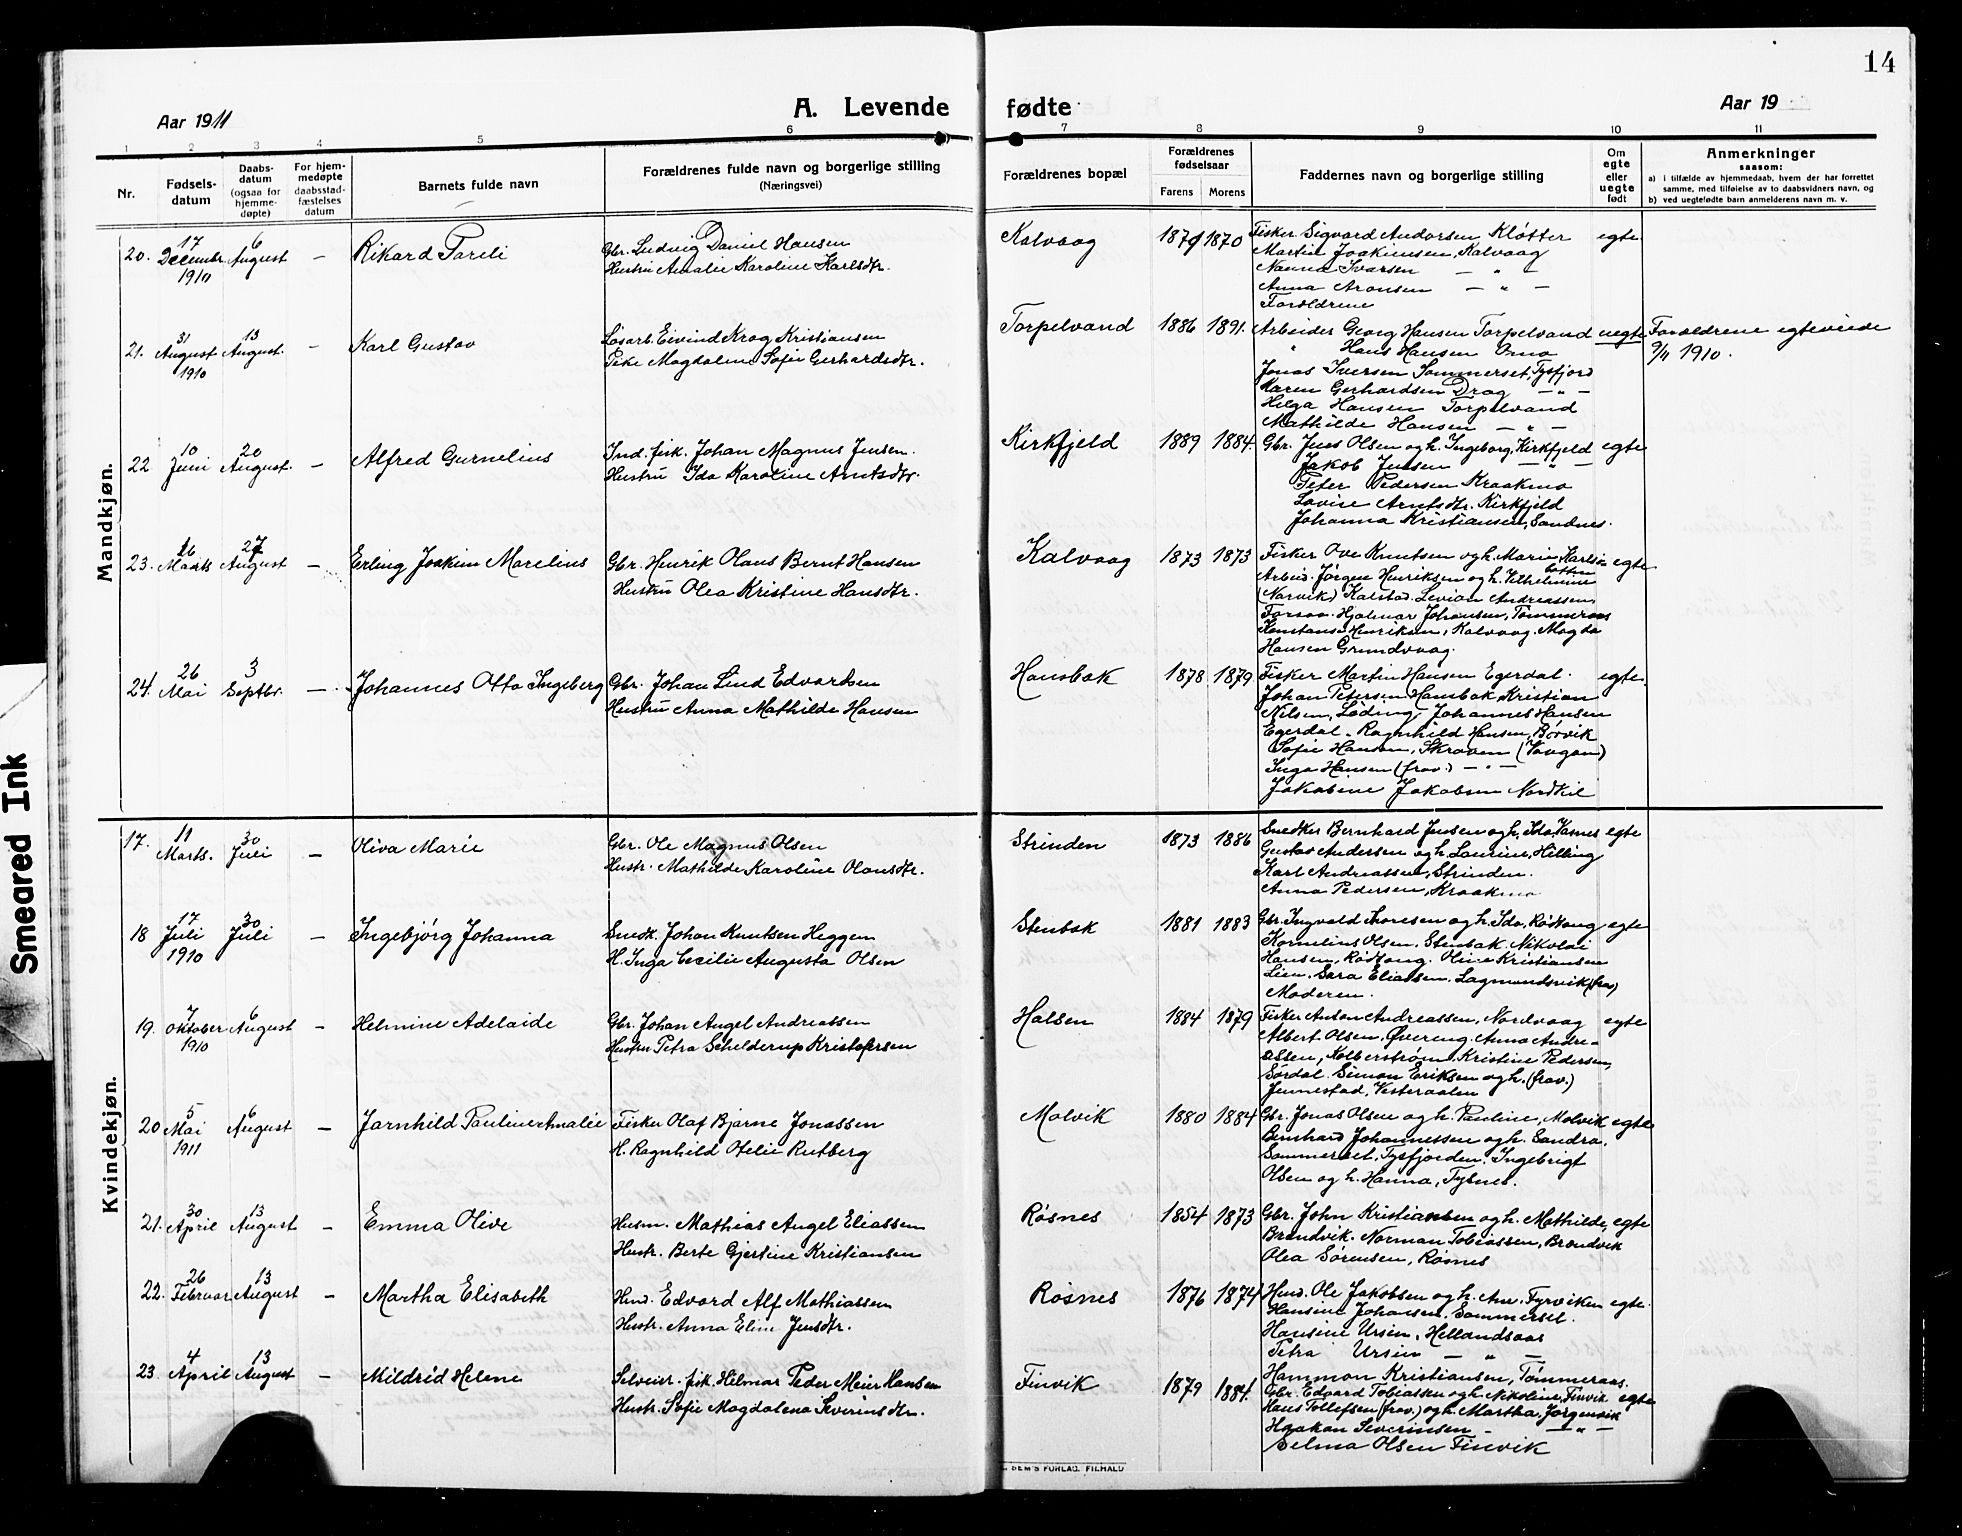 14
Aar 1911
A. Levende
fødte
Aar 19
1 2 3 4 5 6 7 8 9 10 11
Nr.
Fødsels-
datum
Daabs-
datum
(ogsaa for
hjemme-
døpte)
For hjem-
medøpte
daabsstad-
fæstelses
datum
Barnets fulde navn
Forældrenes fulde navn og borgerlige stilling
(Næringsvei)
Forældrenes bopæl
Forældrenes
fødselsaar
Farens Morens
Faddernes navn og borgerlige stilling
Om
egte
eller
uegte
født
Anmerkninger
saasom:
a) i tilfælde av hjemmedaab, hvem der har forrettet
samme, med tilføielse av to daabsvidners navn, og
b) ved uegtefødte barn anmelderens navn m. v.
Mandkjøn.
20. 17 Decembr. 1910 6 August – Rikard Pareli
Gbr. Ludvig Daniel Hansen
Hustru Amalie Karoline Karlsdtr.
Kalvaag 1879 1870
Fisker Sigvard Andorsen Kløtter egte
Martin Joakimsen, Kalvaag
Nanna Ivarsen — " —
Anna Aronsen — " —
Forældrene
21. 31 August 1910 13 August. – Karl Gustav
Løsarb. Eivind Krog Kristiansen
Pike Magdalena Sofie Gerhardsdtr.
Torpelvand 1886 1891.
Arbeider Georg Hansen Torpelvand uegte
" Hans Hansen
Jonas Iversen Sommerset, Tysfjord
Karen Gerhardsen Drag — " —
Helga Hansen Torpelvand
Mathilde Hansen — " —
Forældrene egteviede
9/11 1910.
22 10 Juni 20 August. – Alfred Gurnelius
Ind. fisk. Johan Magnus Jensen.
Hustru Ida Karoline Arntsdtr.
Kirkfjeld 1889 1884.
Gbr. Jens Olsen og h. Ingeborg, Kirkfjeld egte
Jakob Jensen — " —
Peter Pedersen Kraakmo
Lovise Arntsdtr. Kirkfjeld
Johanna Kristiansen, Sandnes.
23. 16 Marts 27 August – Erling Joakim Marelius
Gbr. Henrik Olaus Bernt Hansen
Hustru Olea Kristine Hansdtr.
Kalvaag 1873 1873
Fisker Ove Knutsen og h. Marie, Karlsø egte
Arbeid. Jørgen Henriksen og h. Vilhelmine
(Narvik) Kalstad. Levian Andreassen,
Forsaa. Hjalmar Johansen, Tømmeraas
Konstanse Henriksen, Kalvaag. Magda
Hansen Grundvaag.
24. 26 Mai 3 Septbr. — Johannes Otto Ingeberg
Gbr. Johan Lind Edvardsen
Hustru Anna Mathilde Hansen
Hansbak 1878 1879
Fisker Martin Hansen Egerdal. egte.
Johan Petersen Hansbak, Kristian
Nilsen, Løding. Johannes Hansen
Egerdal. Ragnhild Hansen, Børvik
Sofie Hansen, Skroven (Vaagan)
Inga Hansen (frav.) — " —
Jakobine Jakobsen Nordkil
Kvindekjøn.
17. 11 Marts. 30 Juli – Oliva Marie
Gbr. Ole Magnus Olsen
Hustr. Mathilde Karoline Olausdtr.
Strinden 1873 1886
Snedker Bernhard Jensen og h. Ida, Vasnes egte
Gustav Andersen og h. Laurine, Helling
Karl Andreassen, Strinden.
Anna Pedersen, Kraakmo
18 17 Juli 1910 30 Juli – Ingebjørg Johanna
Snedk. Johan Knutsen Heggen
H. Inga Cecilie Augusta Olsen
Stenbak 1881 1883
Gbr. Ingvald Thoresen og h. Ida, Røttang egte
Kornelius Olsen, Stenbak. Nikolai
Hansen, Røttang. Oline Kristiansen
Lien. Sara Eliassen. Lagmandsvik (frav)
Moderen.
19. 7 Oktober 1910 6 August – Helmine Adelaide
Gbr. Johan Angel Andreassen
Hustru Petra Schelderup Kristofersen
Halsen 1884 1879
Fisker Anton Andreassen, Nordvaag egte
Albert Olsen, Øvereng. Anna Andre-
assen, Kolberstrøm. Kristine Pedersen,
Sørdal. Simon Eriksen og h. (frav.)
Jennestad, Vesteraalen
20 5 Mai 1911 6 August – Jarnhild Pauline Amalie
Fisker Olaf Bjarne Jonassen
H. Ragnhild Otelie Rutberg
Molvik 1880 1884
Gbr. Jonas Olsen og h. Pauline, Molvik egte
Bernhard Johannessen og h. Sandra,
Sommerset, Tysfjorden. Ingebrigt
Olsen og h. Hanna, Tysnes.
21. 30 April 13 August – Emma Olive
Husm. Mathias Angel Eliassen
Hustr. Berte Gjertine Kristiansen
Røsnes 1854 1873
Gbr. John Kristiansen og h. Mathilde, egte
Brendvik. Norman Tobiassen, Brendvik
Olea Sørensen, Røsnes
22. 26 Februar 13 August – Martha Elisabeth
Hmd. Edvard Alf Mathiassen
Hustr. Anna Eline Jensdtr.
Røsnes 1876 1874
Hmd. Ole Jakobsen og h. Ane. Fyrviken egte.
Hansine Johansen, Sommersel.
Hansine Ursin, Hellandsaas
Petra Ursin — " —
Hammon Kristiansen, Tømmeraas.
23. 4 April 13 August – Mildrid Helene
Selveier. fisk. Hilmar Peder Meier Hansen
Hustr. Sofie Magdalena Severinsdtr.
Finvik 1879 1884.
Gbr. Edvard Tobiassen og h. Nikoline, Finvik egte
Hans Tollefsen (frav.) og h. Martha, Jørgensvik
Haakon Severinsen — " —
Selma Olsen Finvik
SEM'S FORLAG, F.HALD
Smeared Ink